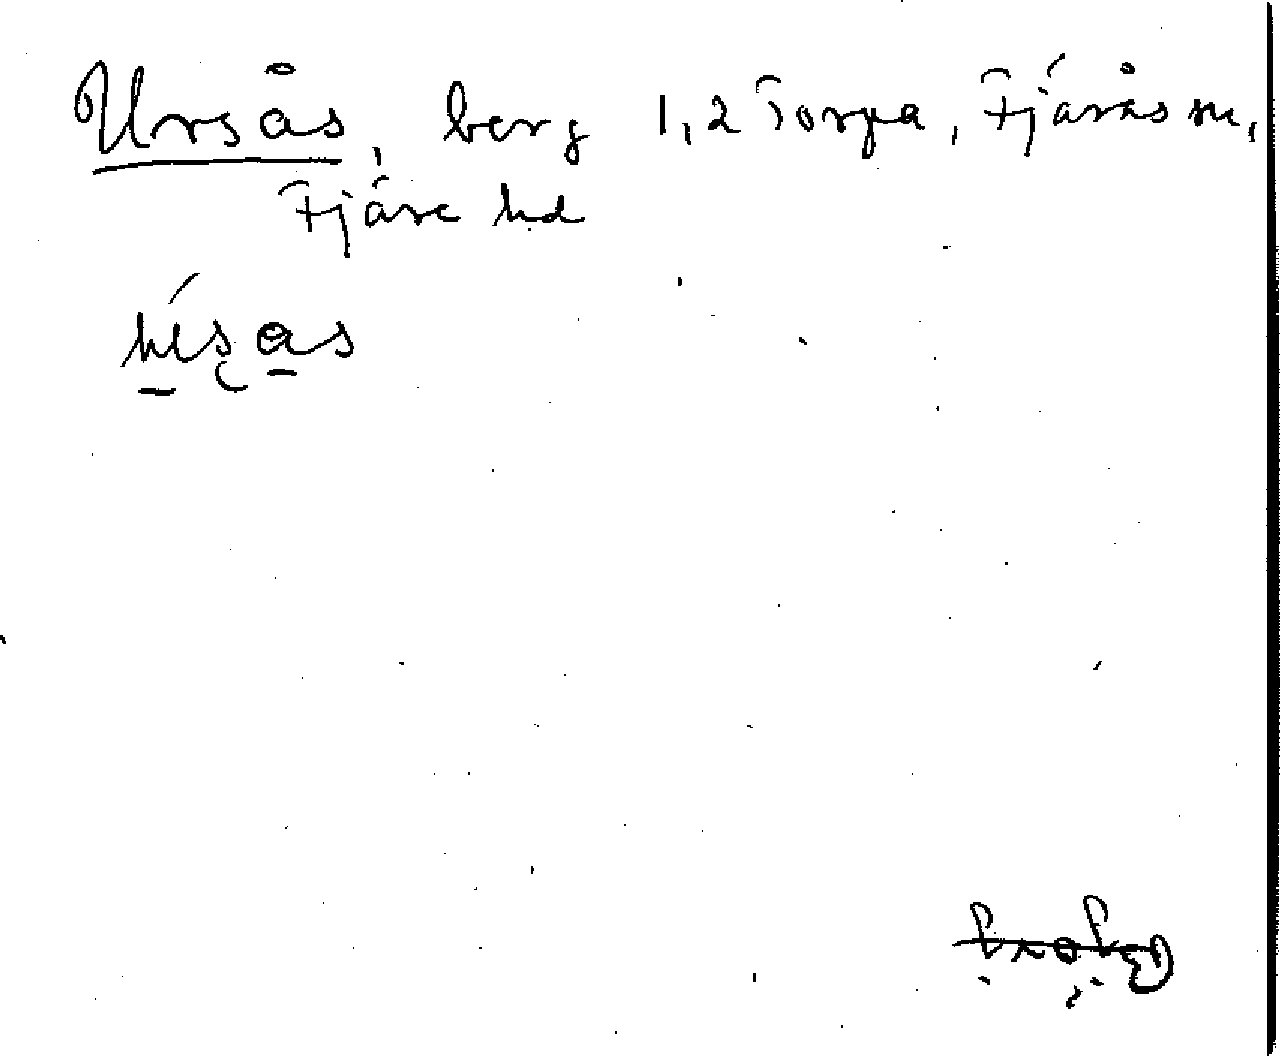 Ursås, berg 1,2 Torpa, Fjärås sn,
Fjäre hd